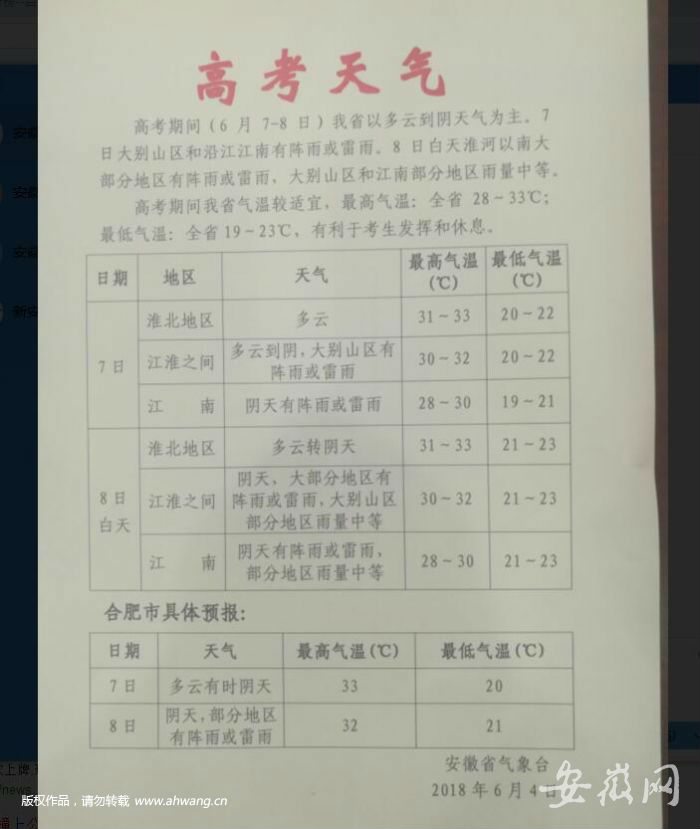 高考天气
高考期间(6 月 7-8 日)我省以多云到阴天气为主。7
日大别山区和沿江江南有阵雨或雷雨。8 日白天淮河以南大
部分地区有阵雨或雷雨，大别山区和江南部分地区雨量中等。
高考期间我省气温较适宜，最高气温：全省 28～33℃；
最低气温：全省 19～23℃，有利于考生发挥和休息。
日期 地区 天气 最高气温(℃) 最低气温(℃)
7 日 淮北地区 多云 31～33 20～22
江淮之间 多云到阴，大别山区有阵雨或雷雨 30～32 20～22
江 南 阴天有阵雨或雷雨 28～30 19～21
8 日白天 淮北地区 多云转阴天 31～33 21～23
江淮之间 阴天，大部分地区有阵雨或雷雨，大别山区部分地区雨量中等 30～32 21～23
江 南 阴天有阵雨或雷雨，部分地区雨量中等 28～30 21～23
合肥市具体预报：
日期 天气 最高气温(℃) 最低气温(℃)
7 日 多云有时阴天 33 20
8 日 阴天，部分地区有阵雨或雷雨 32 21
安徽省气象台
2018 年 6 月 4 日
安徽网
版权作品，请勿转载 www.ahwang.cn